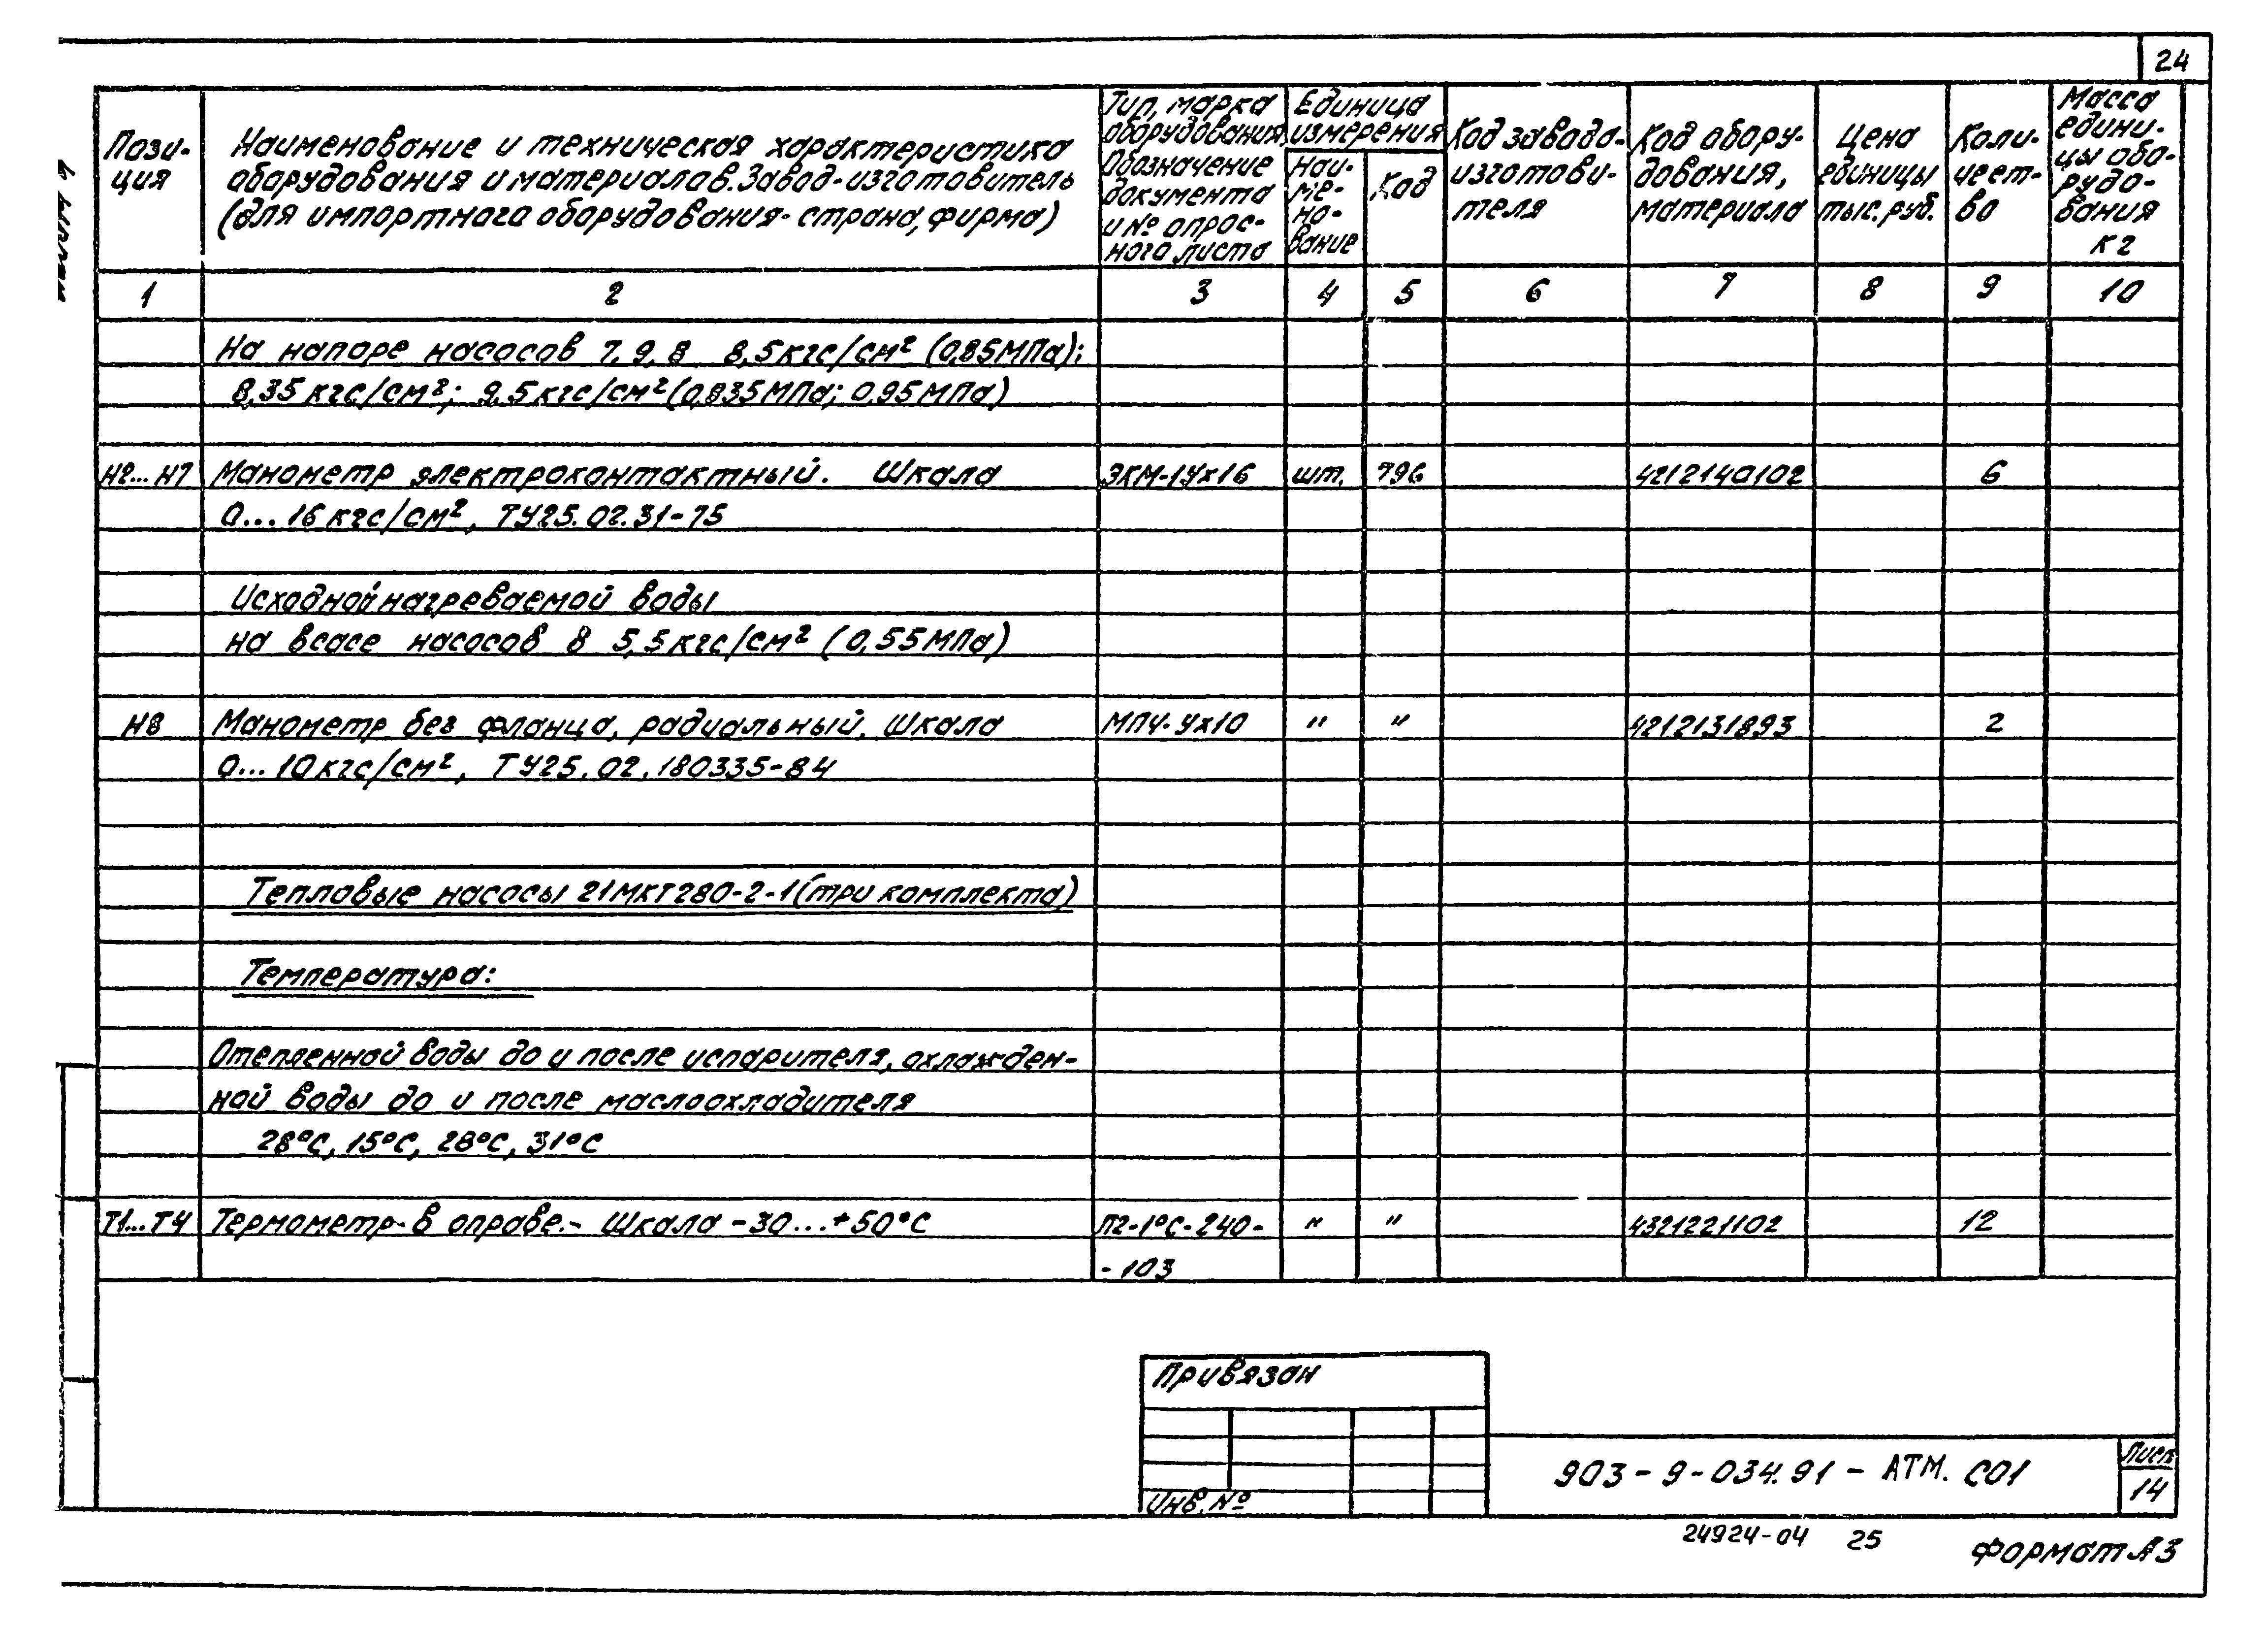 24
Пози-
ция
Наименование и техническая характеристика
оборудования и материалов. Завод-изготовитель
(для импортного оборудования - страна, фирма)
Тип, марка
оборудования
Обозначение
документа
и № опрос-
ного листа
Единица
измерения
Наи-
ме-
но-
вание
Код
Код завода-
изготови-
теля
Код обору-
дования,
материала
Цена
единицы
тыс. руб.
Коли-
чест-
во
Масса
едини-
цы обо-
рудо-
вания
кг
1 2 3 4 5 6 7 8 9 10
На напоре насосов 7, 9, 8 8,5 кгс/см² (0,85 МПа);
8,35 кгс/см²; 9,5 кгс/см² (0,835 МПа; 0,95 МПа)
Н2...Н7 Манометр электроконтактный. Шкала ЭКМ-1Ух16 шт. 796 4212140102 6
0...16 кгс/см², ТУ25.02.31-75
Исходной нагреваемой воды
на всасе насосов 8 5,5 кгс/см² (0,55 МПа)
Н8 Манометр без фланца, радиальный. Шкала МПУ-Ух10 " " 4212131893 2
0...10 кгс/см², ТУ25.02.180335-84
Тепловые насосы 21МКТ280-2-1 (три комплекта)
Температура:
Отепленной воды до и после испарителя, охлажден-
ной воды до и после маслоохладителя
28°С, 15°С, 28°С, 31°С
Т1...Т4 Термометр в оправе. Шкала -30...+50°С П2-1°С-240- " " 4321221102 12
-103
Привязан
Инв. №
903-9-034.91 - АТМ. СО1
Лист
14
24924-04 25
Формат А3